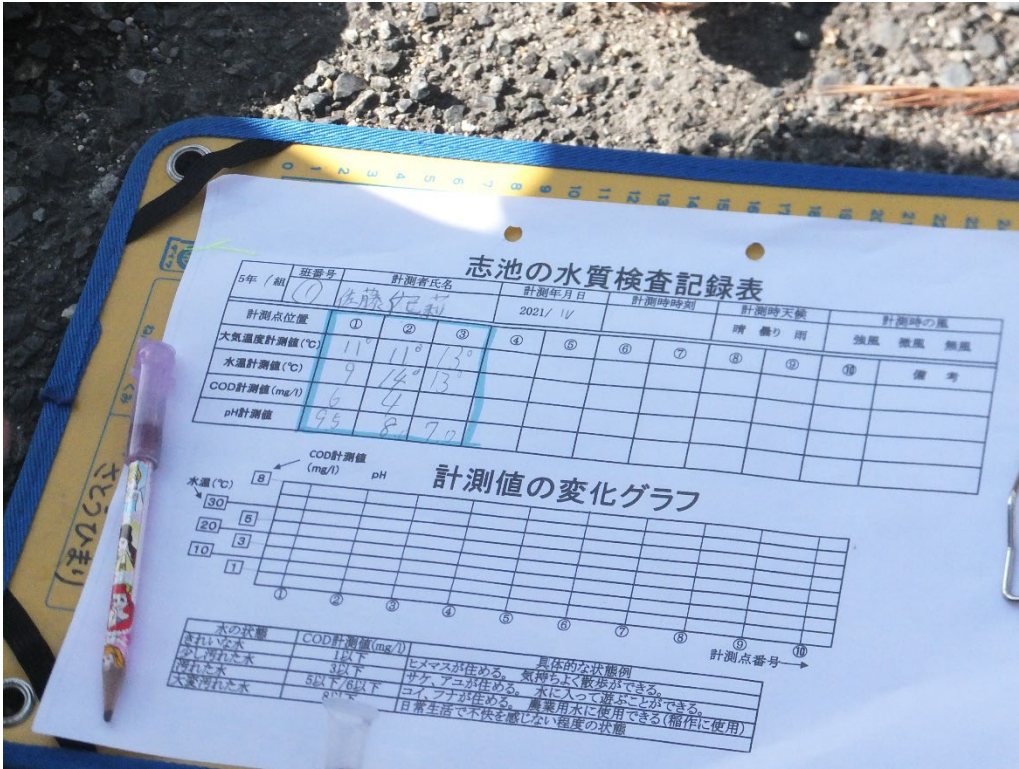 0 1 2 3 4 5 6 7 8 9 10 11 12 13 14 15 16 17 18 19 20 21 22 23 24
志池の水質検査記録表
5年 1組 班番号 計測者氏名 計測年月日 計測時時刻 計測時天候 計測時の風
① 佐藤 莉 2021/ 晴 曇り 雨 強風 微風 無風
計測点位置 ① ② ③ ④ ⑤ ⑥ ⑦ ⑧ ⑨ ⑩ 備考
大気温度計測値(℃) 11° 11° 13°
水温計測値(℃) 9 14° 13°
COD計測値(mg/l) 6 4
pH計測値 9.5 8. 7.
計測値の変化グラフ
COD計測値
(mg/l)
pH
水温(℃)
8
30
5
20
3
10
1
① ② ③ ④ ⑤ ⑥ ⑦ ⑧ ⑨ ⑩
計測点番号
水の状態 COD計測値(mg/l) 具体的な状態例
きれいな水 1以下 ヒメマスが住める。 気持ちよく散歩ができる。
少し汚れた水 3以下 サケ、アユが住める。 水に入って遊ぶことができる。
汚れた水 5以下/6以下 コイ、フナが住める。 農業用水に使用できる(稲作に使用)
大変汚れた水 8以下 日常生活で不快を感じない程度の状態
くみ
さとうひまり